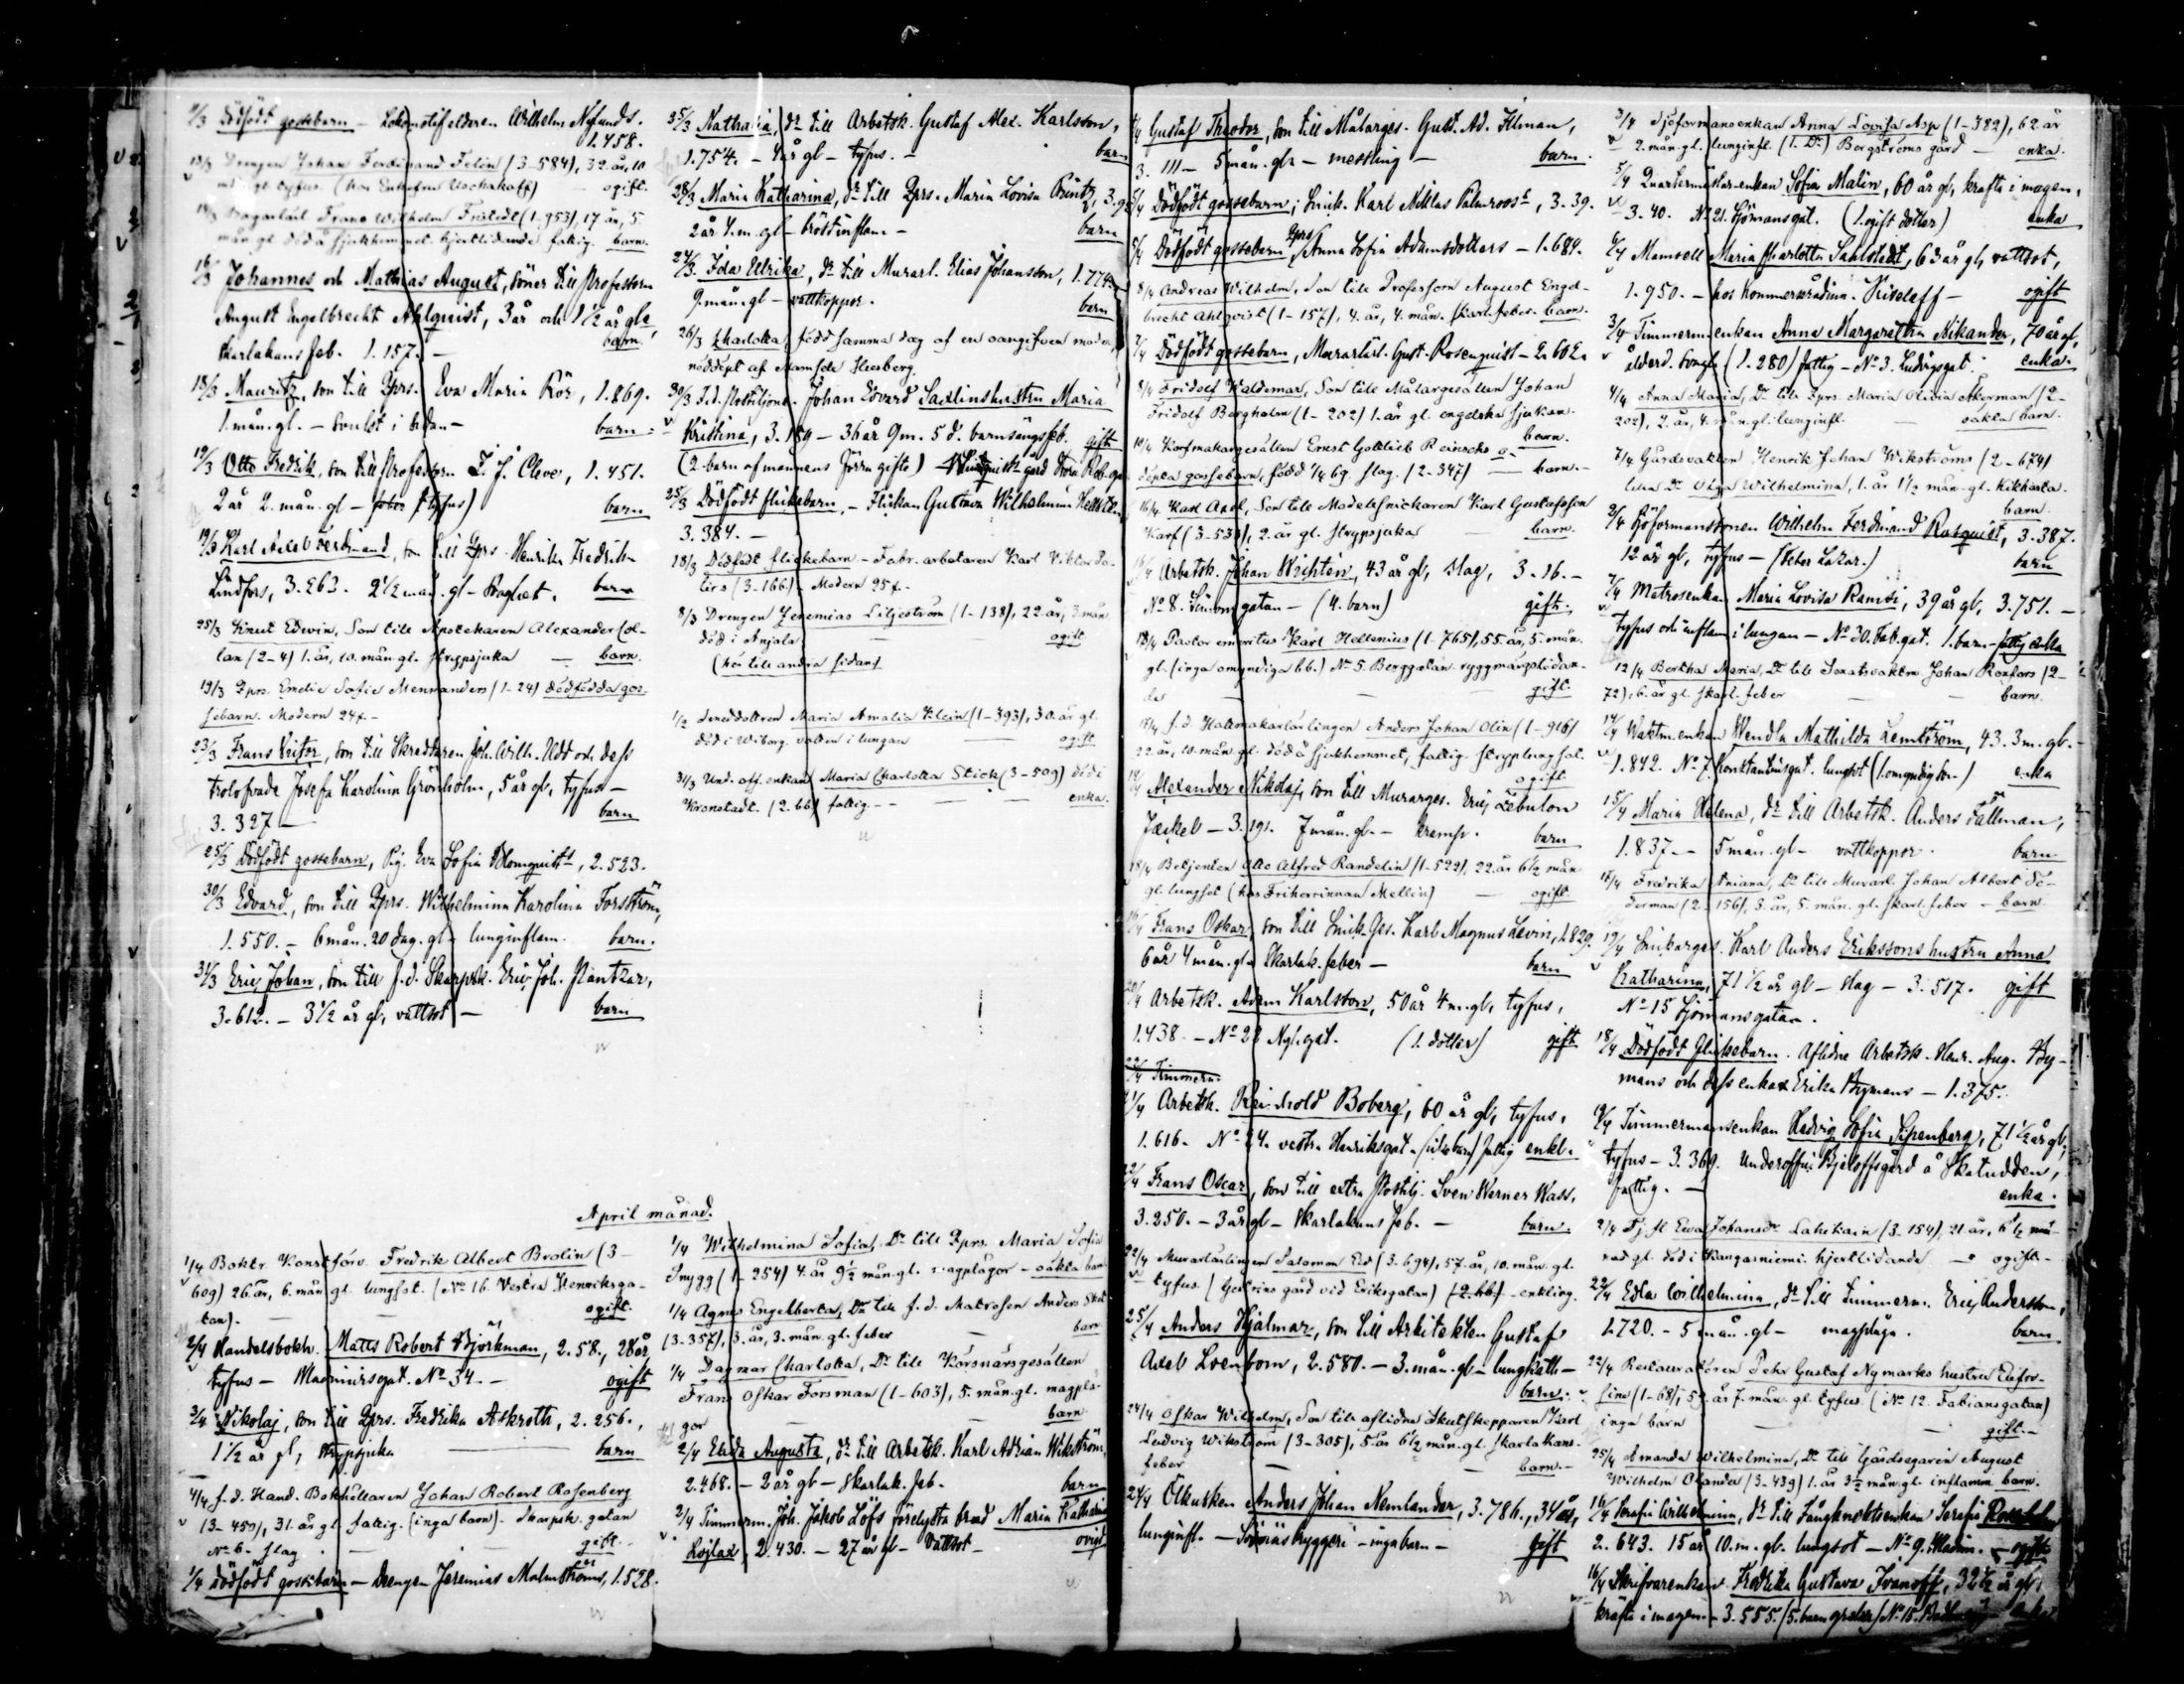 11/3 Dödfödt gossebarn - Lokomotifeldaren Wilhelm Nylunds.
1.458.
13/3 Drengen Johan Ferdinand Felin (3-584), 32 år, 10
mån. gl. tyfus. (hos Enkefru Uschakoff) - ogift.
Frans Wilhelm (1-953), 17 år, 5
mån. gl. död å sjukhemmet. hjertlidande fattig. barn.
16/3 Johannes och Mathias August, söner till Professorn
August Engelbrecht Ahlquist, 3 år och 1 1/2 år gla
skarlakans feb. 1.157. - barn.
18/3 Mauritz, son till Qprs. Eva Maria Rör, 1.869.
1. mån. gl. - barn.
19/3 Otto Fredrik, son till Professorn Z. J. Cleve, 1.451.
2 år 2. mån. gl - (tyfus) barn
19/3 Karl Axel Ferdinand, son till Qprs. Henrika Fredrika
Lindfors, 3.263. 2 1/2 mån. gl - Svaghet. barn
25/3 Knut Edvin, Son till Apotekaren Alexander Col-
lan (2-4) 1. år, 10. mån. gl. strypsjuka - barn.
19/3 Qprs. Emelie Sofie Mennanders (1-24) dödfödda gos-
sebarn. Modern 24 f. -
23/3 Frans Victor, son till Skredaren Joh. Wilh. Uldt och dess
trolofvade Josefa Karolina Grönholm, 5 år gl, tyfus -
3.327 - barn
25/3 Dödfödt gossebarn, Pig. Eva Sofia Blomquists, 2.523.
30/3 Edvard, son till Qprs. Wilhelmina Karolina Forsström,
1.550. - 6 mån. 20 dag. gl - lunginflam. barn.
31/3 Eric Johan, son till f.d. Skarpsk. Eric Joh. Pantzar,
3.612. - 3 1/2 år gl, vattsot - barn
25/3 Nathalia, dr till Arbetsk. Gustaf Alex. Karlsson,
1.754. - 4 år gl - tyfus. - barn
28/3 Maria Katharina, dr till Qprs. Maria Lovisa Printz, 3.95
2 år 4. m. gl - bröstinflam - barn
27/3. Ida Ulrika, dr till Murarl. Elias Johansson, 1.774.
9. mån. gl - vattkoppor. barn
26/3 Charlotta, född samma dag af en oangifven moder,
nöddöpt af Mamsell Husberg.
30/3 F.d. Postiljons. Johan Edvard Saxlins hustru Maria
Kristina, 3.189 - 36 år 9 m. 5 d. barnsängsfeb. gift
(2. barn af mannens förra gifte) gård Stora Rob. gat
25/3 Dödfödt flickebarn, - Flickan Gustava Wilhelmina
3.384. -
18/3 Dödfödt flickebarn - Fabr. arbetaren Karl Viktor
(3-166). Modern 25 f. -
8/3 Drengen Jeremias Liljeström (1-138), 22 år, 3 mån
död i Anjala. - ogift
(hör till andra sidan)
1/2 Smeddottren Maria Amalia Klein (1-393), 30. år gl.
död i Wiborg. in lungan ogift
31/3 Und. off. enkan Maria Charlotta Stick (3-509) död i
Kronstadt. (2. bb) fattig. - - - enka.
April månad.
1/4 Boktr. Konstförv. Fredrik Albert Brolin (3-
609) 26 år, 6. mån. gl. lungsot. (No 16. Vestra Henriksga-
tan). - - ogift.
2/4 Handelsbokh. Matts Robert Björkman, 2.58., 28 år
tyfus - No 34. - ogift
3/4 Nikolaj, son till Qprs. Fredrika Askroth, 2.256.,
1 1/2 år gl, strypsjuka - barn
4/4 f.d. Hand. Bokhållaren Johan Robert Rosenberg
(3-459), 31. år gl. fattig. (inga barn). Skarpsk. gatan
No 6. slag - - gift.
1/4 Dödfödt gossebarn - Drengen Jeremias Malmströms, 1.528.
1/4 Wilhelmina Sofia, Dr till Qprs. Maria Sofia
Snygg (1-254) 4. år 9 1/2 mån. gl. magplågor - oäkta barn
1/4 Agnes Engelberta, Dr till f.d. Matrosen Anders
(3.357), 3. år, 3. mån. gl. feber - barn
1/4 Dagmar Charlotta, Dr till Körsnärsgesällen
Frans Oskar Forsman (1-603), 5. mån. gl. magplå-
gor - - barn
2/4 Elida Augusta, dr till Arbetsk. Karl Adrian Wikström,
2.468. - 2 år gl - skarlak. feb. - barn
2/4 Timmerm. Joh. Jakob Löfs förlysta brud Maria Katharina
Röjlax, 2.430. - 27 år gl - Vattsot - ovigd
Gustaf Theodor, son till Målarges. Gust. Ad. Illman,
3. 111 - 5 mån. gl - messling - barn.
5/4 Dödfödt gossebarn, Snick. Karl Niklas Palmroos's, 3.39.
5/4 Dödfödt gossebarn, Qprs Anna Sofia Adamsdotters - 1.684.
8/4 Andreas Wilhelm, Son till Professorn August Engel-
brecht Ahlqvist (1-157), 4. år, 4. mån. skarl. feber. barn.
7/4 Dödfödt gossebarn, Murarlärl. Gust. Rosenquist - 2.602.
8/4 Fridolf Waldemar, Son till Målargesällen Johan
Fridolf Bergholm (1-202) 1. år gl. engelska sjukan.
barn.
10/4 Korfmakargesällen Ernst Gottlieb Reinecks o-
döpta gossebarn, född 1/4 69. slag. (2-347) - barn.
16/4 Karl Axel, Son till Modellsnickaren Karl Gustafsson
Karf (3-531), 2. år gl. strypsjuka - barn.
Arbetsk. Johan Wichtén, 43 år gl, slag, 3.16. -
No 8. Simonsgatan - (4. barn) gift.
13/4 Pastor emeritus Karl Hellenius (1-765), 55. år, 5. mån.
gl. (inga omyndiga bb.) No 5. Berggatan. ryggmärgslidan-
de - - gift.
f.d. Hattmakarlärlingen Anders Johan Olin (1-916)
22. år, 10. mån. gl. död å sjukhemmet, fattig.
ogift
Alexander Nikolaj, son till Murarges. Eric Zebulon
Jæckel - 3.191. 7 mån. gl. - kramp. barn
18/4 Betjenten Otto Alfred Randelin (1-522), 22. år 6 1/2 mån
gl. lungsot (hos Friherrinnan Mellin) - ogift
Frans Oskar, son till Snick. Ges. Karl Magnus Levin, 1.829.
6 år 4 mån. gl - Skarlak. feber - barn
Arbetsk. Adam Karlsson, 50 år 4 m. gl, tyfus,
1.438. - No 28 Nyl. gat. (1. dotter) gift
22/4 Timmerm.
Arbetsk. Reinhold Boberg, 60 år gl, tyfus,
1.616. No 24. vestra Henriksgat. fattig enkl.
22/4 Frans Oscar, son till extra Postilj. Sven Werner Wass,
3.250. - 3 år gl - skarlakans feb. - barn.
22/4 Murarlärlingen Salomon Eld (3.694), 57. år, 10. mån. gl.
tyfus. ( gård vid Eriksgatan) (2 bb.) - enkling.
25/4 Anders Hjalmar, son till Arkitekten Gustaf
Axel Lovenbom, 2.580. - 3. mån. gl - lungkath -
barn.
24/4 Oskar Wilhelm, Son till aflidne Skutskepparen Karl
Ludvig Wikström (3-305), 5. år 6 1/2 mån. gl. skarlakans-
feber - - barn.
24/4 Ölkusken Anders Johan Nemlander, 3.786., 34 år,
lunginfl. - Sörnäs bryggeri - inga barn - gift
3/4 Sjöformansenkan Anna Lovisa Asp (1-382), 62. år
2. mån. gl. lunginfl. (1. Dr) Bergströms gård - enka.
5/4 Quartermästar-enkan Sofia Malin, 60 år gl, kräfta i magen,
3.40. No 21. Sjömansgat. (1. gift dotter) enka
6/4 Mamsell Maria Charlotta Sahlstedt, 63 år gl, vattsot,
1.950. - hos Kommerserådinn. Kiseleff - ogift
3/4 Timmerm. enkan Anna Margaretha Nikander, 70 år gl,
ålderd. (1.280) fattig - No 3. Ludvigsgat. enka
4/4 Anna Maria, Dr till Qprs. Maria Olivia Åkerman (2-
202), 2. år, 4. mån. gl. lunginfl. - oäkta barn.
7/4 Gårdsvakten Henrik Johan Wikströms (2-674)
lilla Dr Olga Wilhelmina, 1. år 1 1/2 mån. gl. kikhosta.
barn.
Sjöformanssonen Wilhelm Ferdinand Rosquist, 3.387.
12 år gl, tyfus - barn
7/4 Matrosenkan Maria Lovisa Ramsi, 39 år gl, 3.751. -
tyfus och inflam i lungan - No 30. Fab. gat. 1. barn - fattig enka
12/4 Bertha Maria, Dr till Senatsvaktm Johan Roxfors (2-
72), 6. år gl. skarl. feber - barn.
14/4 Waktm. enkan Wendla Mathilda Lemström, 43. 3 m. gl. -
1.842. No 7 Konstantinsgat. lungsot (1. omyndig son) enka
15/4 Maria Helena, dr till Arbetsk. Anders Fällman,
1.837. - 5 mån. gl - vattkoppor. barn
16/4 Fredrika Aniana, Dr till Murarl. Johan Albert Sö-
derman (2-156), 3. år, 5. mån. gl. skarl. feber - barn
19/4 Snickarges. Karl Anders Erikssons hustru Anna
Catharina, 71 1/2 år gl - slag - 3.517. gift
No 15 Sjömansgatan.
18/4 Dödfödt flickebarn. Aflidne Arbetsk. Henr. Aug. Ny-
mans och dess enka Erika Nymans - 1.375.
19/4 Timmermansenkan Hedvig Sofia Sipenberg, 71 1/2 år gl,
tyfus - 3.369. Underoffic. gård å Skatudden,
fattig. - enka.
2/4 Tj. fl. Eva Johansdr Lahikain (3.154), 21. år, 6 1/2 må-
nad gl. död i Kangasniemi. hjertlidande - ogift. -
22/4 Edla Wilhelmina, dr till Timmerm. Eric Andersson,
1.720. - 5 mån. gl - magplåga. barn
22/4 Restauratören Petter Gustaf Nymarks hustru Eufro-
sine (1-68), 52. år 7. mån. gl. tyfus. (No 12. Fabiansgatan)
inga barn - gift. -
25/4 Amanda Wilhelmina, Dr till Gårdsegaren August
Wilhelm Olander (3-439) 1. år 3 1/2 mån. gl. inflamm barn.
16/4 Serafia Wilhelmina, dr till Fångknektsenkan Serafia
2.643. 15 år 10. m. gl. lungsot - No 9. ogift
16/4 Skrifvarenkan Fredrika Gustava Ivanoff, 32 1/2 år gl,
kräfta i magen. - 3.555. (5. barn No 15.